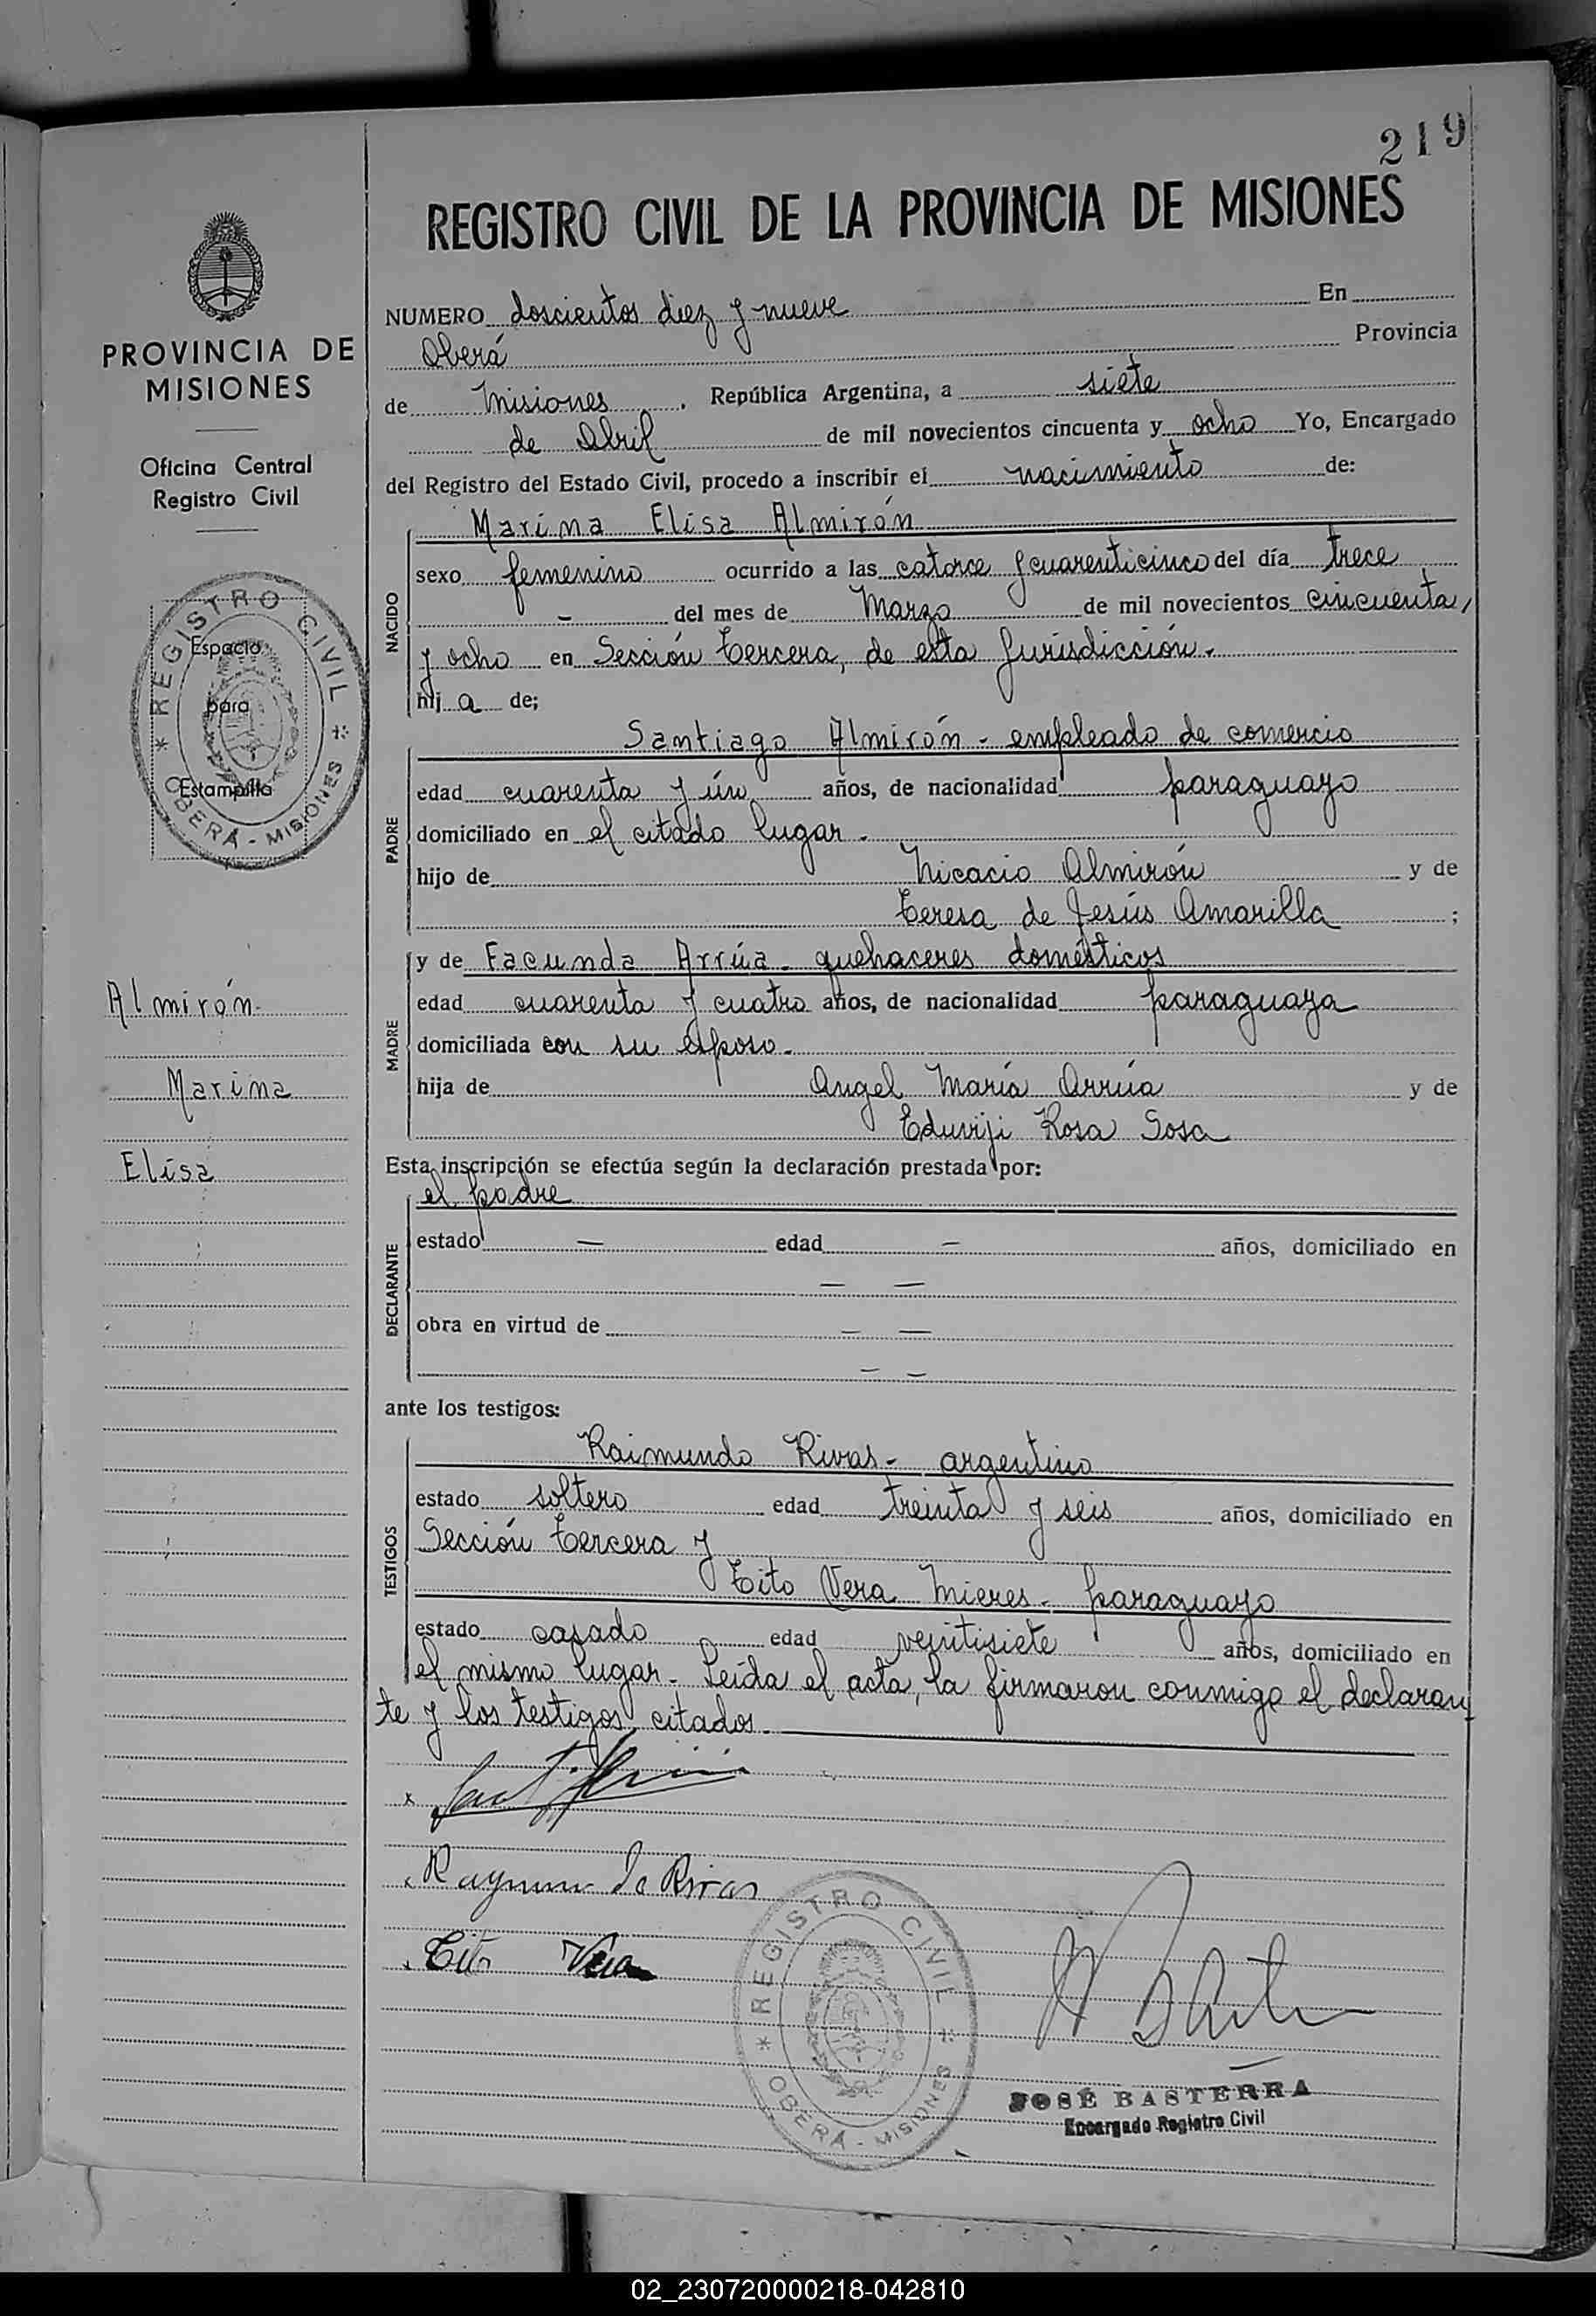 219
REGISTRO CIVIL DE LA PROVINCIA DE MISIONES
PROVINCIA DE
MISIONES
Oficina Central
Registro Civil
REGISTRO CIVIL
OBERÁ - MISIONES
Espacio
para
Estampilla
Almirón
Marina
Elisa
NUMERO doscientos diez y nueve En
Oberá Provincia
de Misiones, República Argentina, a siete
de Abril de mil novecientos cincuenta y ocho Yo, Encargado
del Registro del Estado Civil, procedo a inscribir el nacimiento de:
NACIDO
Marina Elisa Almirón
sexo femenino ocurrido a las catorce y cuarenticinco del día trece
- del mes de Marzo de mil novecientos cincuenta
y ocho en Sección Tercera, de esta Jurisdicción.
hij a de;
PADRE
Santiago Almirón - empleado de comercio
edad cuarenta y ún años, de nacionalidad paraguayo
domiciliado en el citado lugar.
hijo de Nicacio Almirón y de
Teresa de Jesús Amarilla ;
MADRE
y de Facunda Arrúa - quehaceres domésticos
edad cuarenta y cuatro años, de nacionalidad paraguaya
domiciliada con su esposo.
hija de Angel María Arrúa y de
Eduviji Rosa Sosa
Esta inscripción se efectúa según la declaración prestada por:
DECLARANTE
el padre
estado — edad — años, domiciliado en
— —
obra en virtud de — —
— —
ante los testigos:
TESTIGOS
Raimundo Rivas - argentino
estado soltero edad treinta y seis años, domiciliado en
Sección Tercera y
Tito Vera Mieres - paraguayo
estado casado edad veintisiete años, domiciliado en
el mismo lugar - Leída el acta, la firmaron conmigo el declaran
te y los testigos citados.
Tito Vera
REGISTRO CIVIL
OBERÁ - MISIONES
JOSÉ BASTERRA
Encargado Registro Civil
02_230720000218-042810